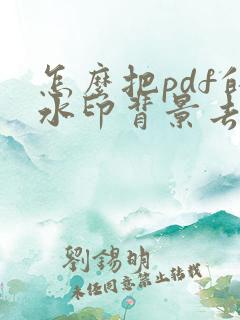 怎麼把pdf的
水印背景去
劉錫明
未经同意禁止转载